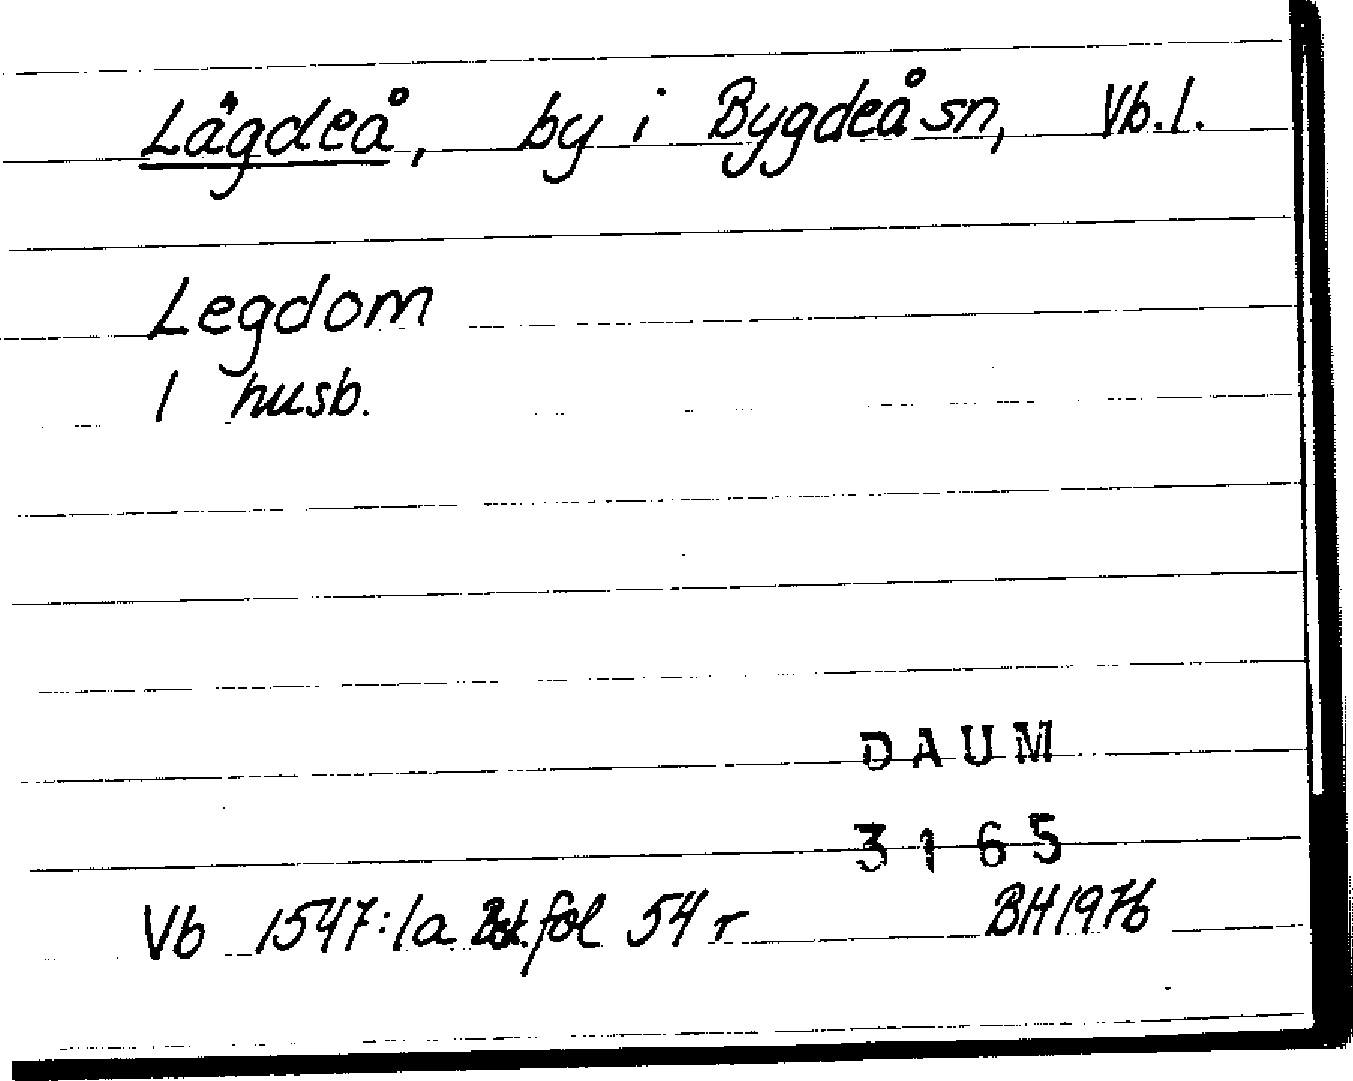 Lägdeå, by i Bygdeå sn, Vb. l.
Legdom
1 husb.
DAUM
3165
Vb 1547:1a fol 54 r BH 1976